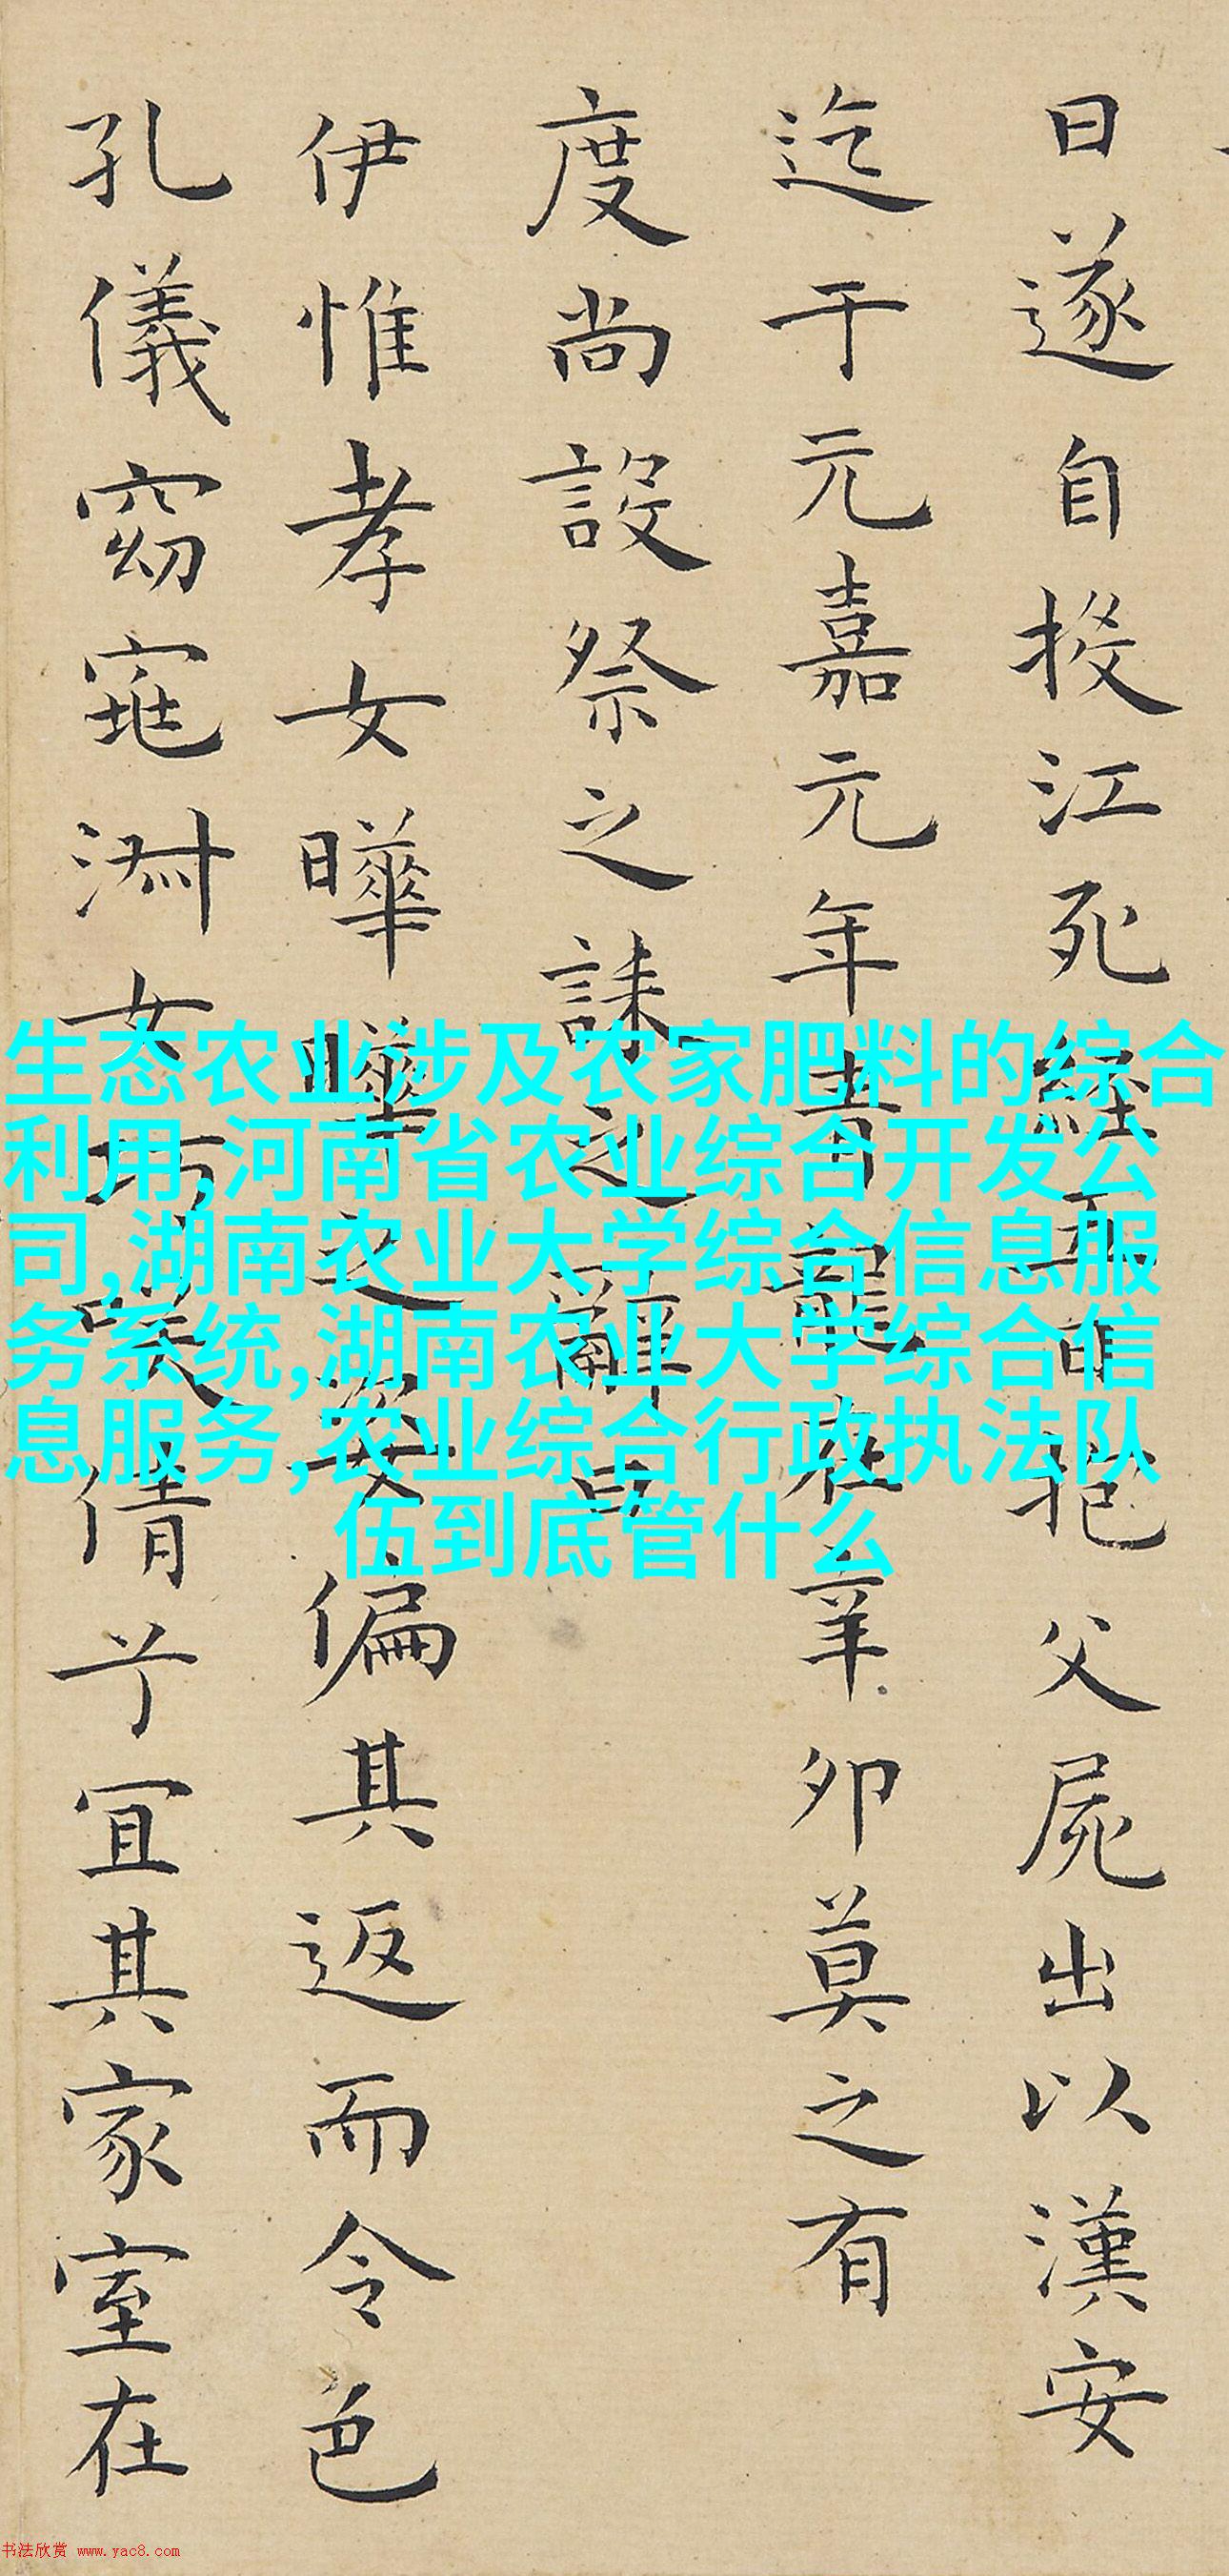 日遂自投江死經五日抱父屍出以漢安
迄于元嘉元年青龍在辛卯莫之有
度尚設祭之誄之辭曰
伊惟孝女曄曄之姿偏其返而令色
孔儀窈窕淑女巧笑倩兮宜其家室在
生态农业涉及农家肥料的综合
利用,河南省农业综合开发公
司,湖南农业大学综合信息服
务系统,湖南农业大学综合信
息服务,农业综合行政执法队
伍到底管什么
书法欣赏 www.yac8.com